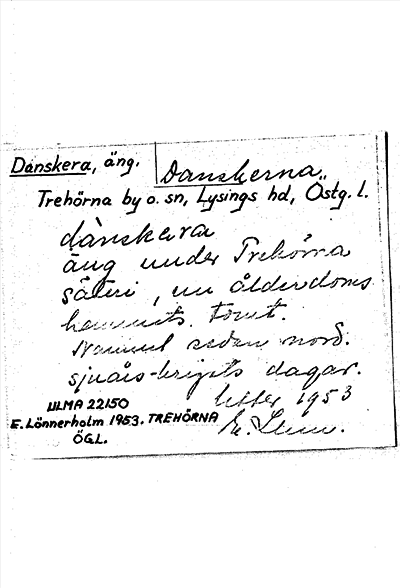 Dånskera, äng.
Danskerna
Trehörna by o. sn, Lysings hd, Östg. l.
dånskera
äng under Trehörna
säteri, nu ålderdoms
hemmets tomt.
Namnet sedan nord.
sjuårs-krigets dagar.
ULMA 22150
E. Lönnerholm 1953. TREHÖRNA
ÖGL.
1953